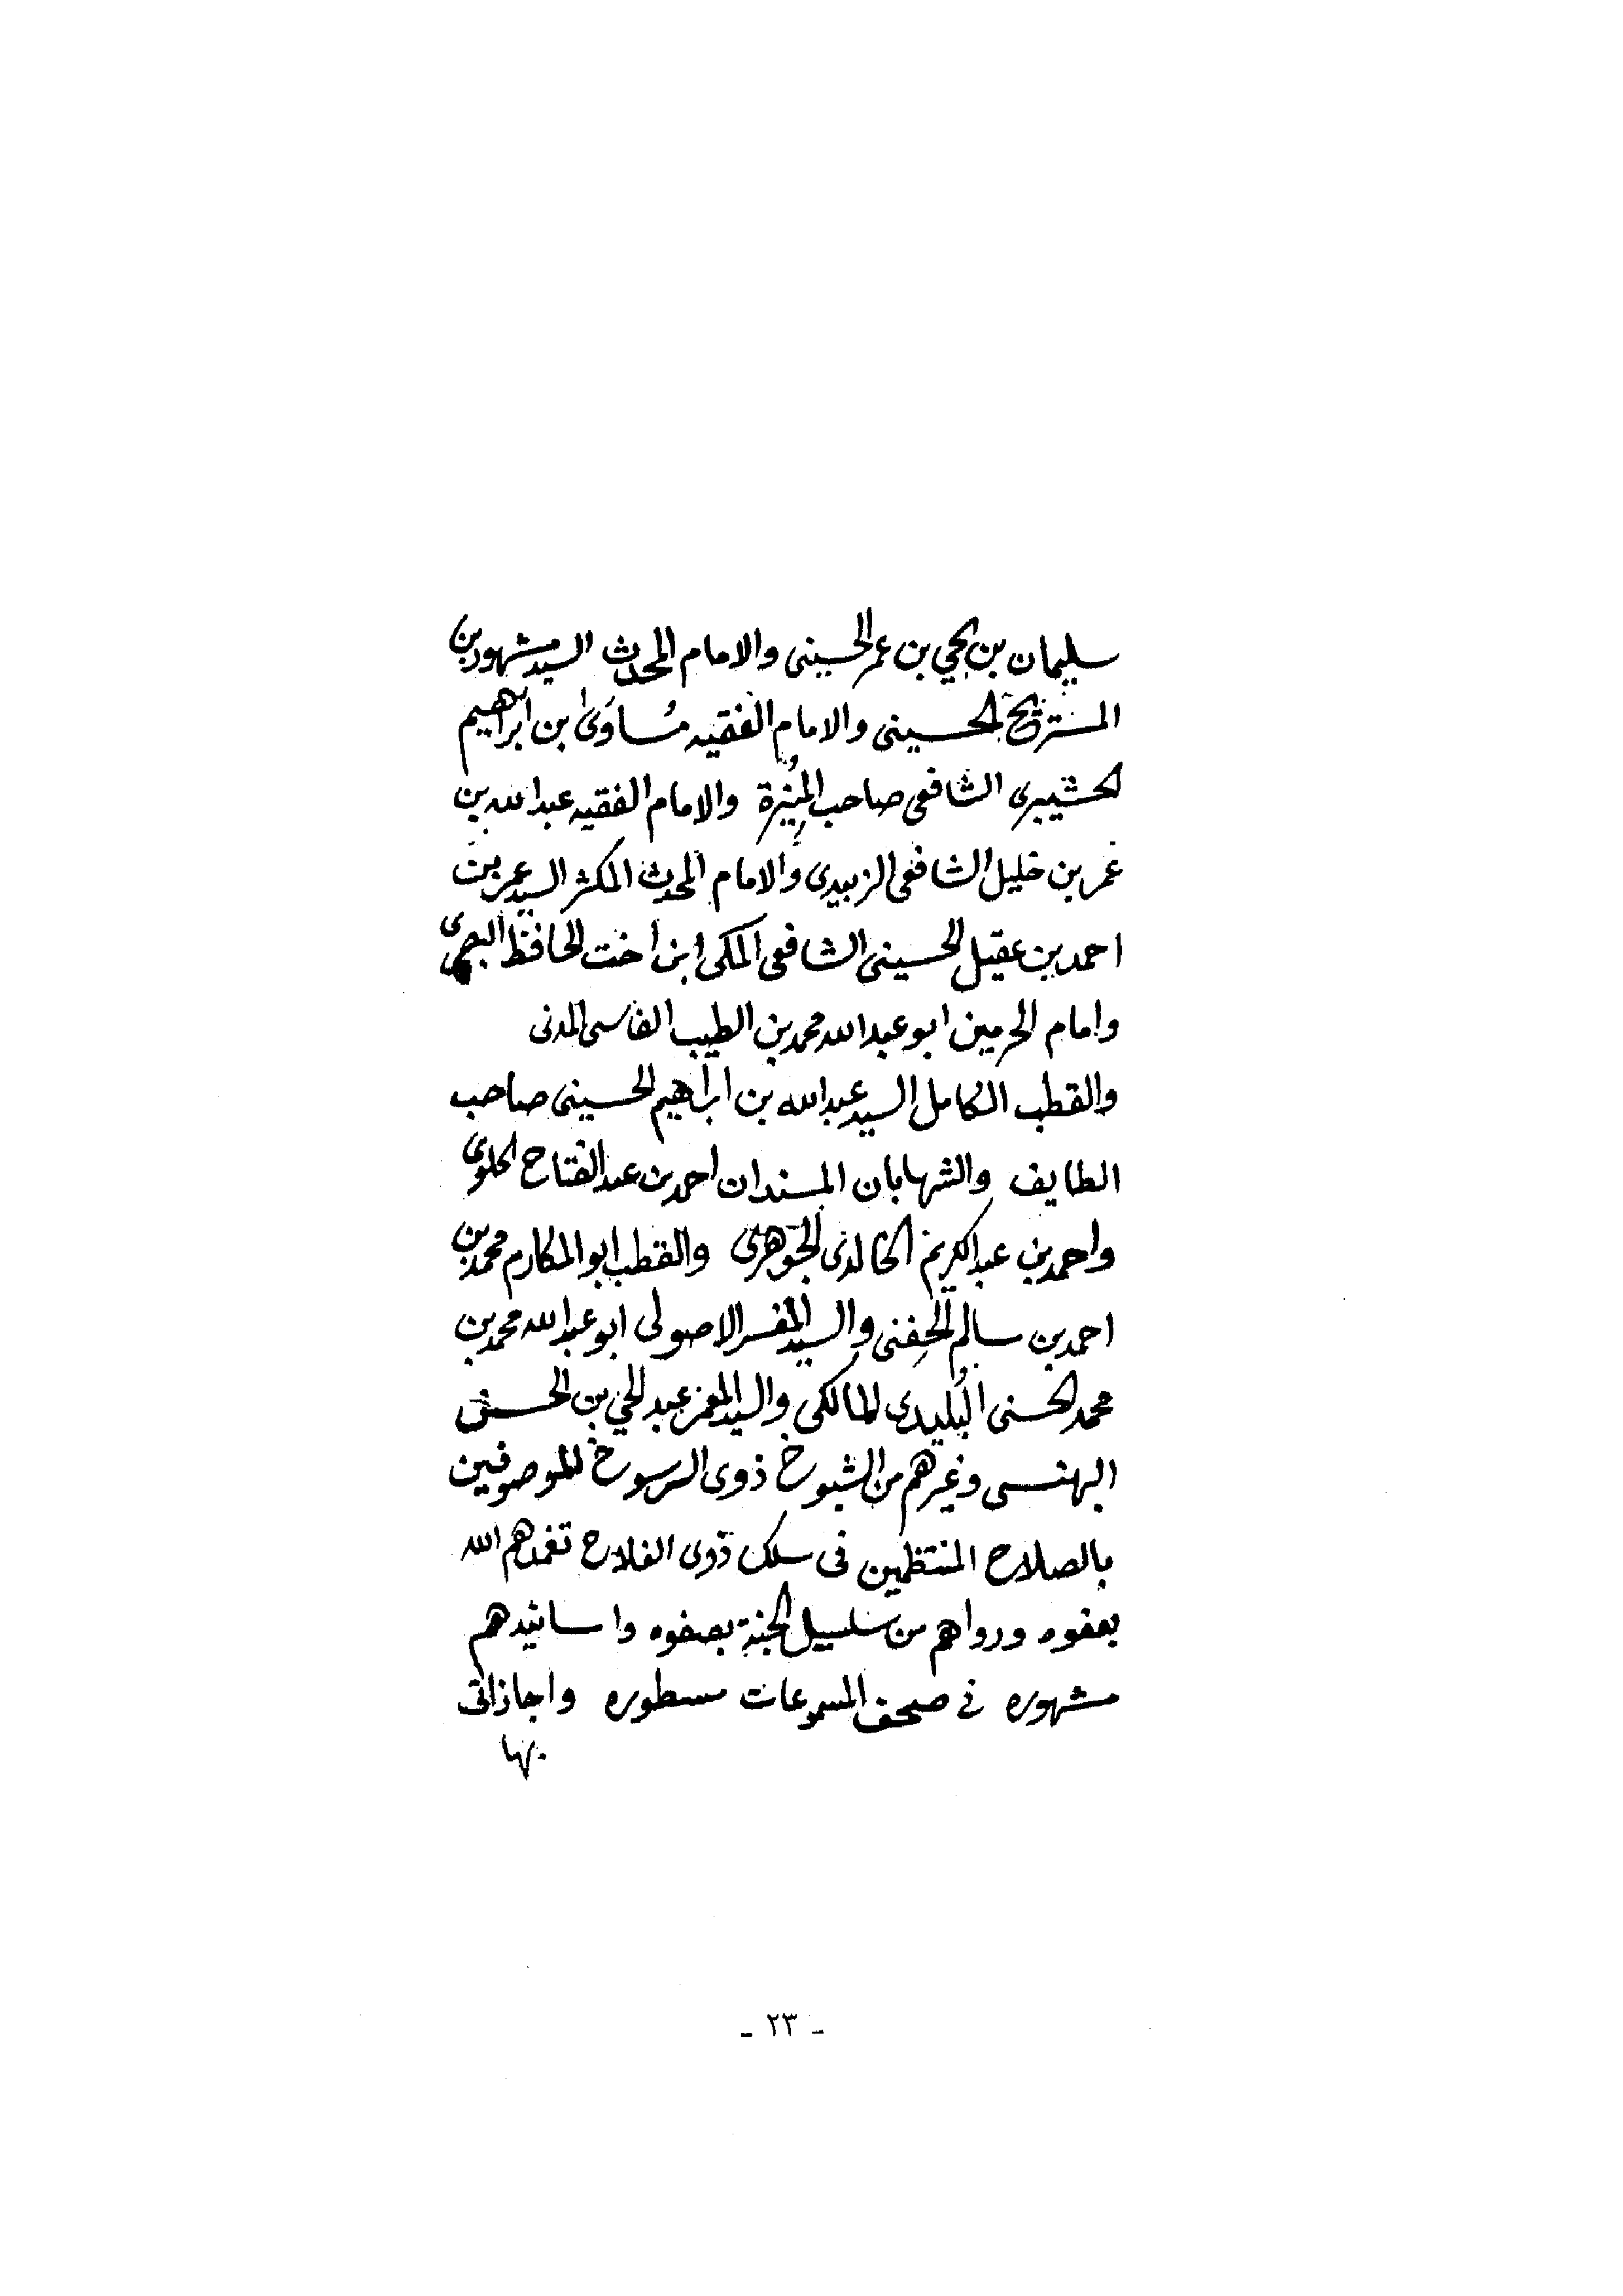 سليمان بن يحيي بن عمر الحسيني والامام المحدث السيد مشهور بن
المستريح الحسيني والامام الفقيه مُساوَى بن ابراهيم
الحشيبرى الشافعى صاحب المُنِيرة والامام الفقيه عبد الله بن
عمر بن خليل الشافعى الزبيدى والامام المحدث المكثر السيد عمر بن
احمد بن عقيل الحسينى الشافعى المكى ابن اخت الحافظ البصرى
وامام الحرمين ابو عبد الله محمد بن الطيب الفاسى المدنى
والقطب الكامل السيد عبد الله بن ابراهيم الحسينى صاحب
الطايف والشهابان المسندان احمد بن عبد الفتاح الملوى
واحمد بن عبد الكريم الخالدى الجَوهرى والقطب ابو المكارم محمد بن
احمد بن سالم الحِفنى والسيد المفسر الاصولى ابو عبد الله محمد بن
محمد الحسنى البُليدى المالكى والسيد المعمر عبد الحي بن الحسن
البهنسى وغيرهم من الشيوخ ذوى الرسوخ الموصوفين
بالصلاح المنتظمين فى سلك ذوى الفلاح تغمدهم الله
بعفوه ورواهم من سلسبيل الجنة بصفوه واسانيدهم
مشهوره فى صحف المسموعات مسطوره واجازاتى
بها
- ٢٣ -